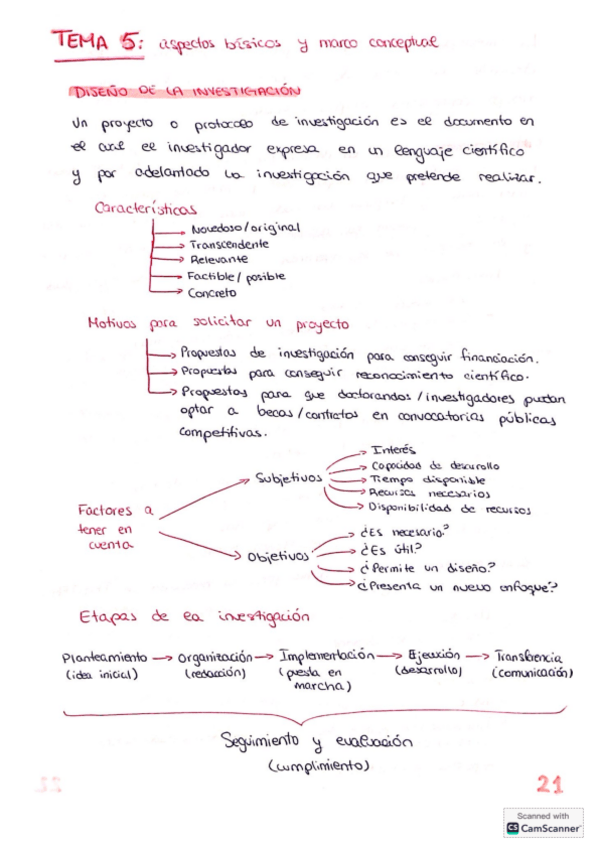 TEMA 5: aspectos básicos y marco conceptual
DISEÑO DE LA INVESTIGACIÓN
Un proyecto o protocolo de investigación es el documento en
el cual el investigador expresa en un lenguaje científico
y por adelantado la investigación que pretende realizar.
Características
Novedoso/original
Transcendente
Relevante
Factible/posible
Concreto
Motivos para solicitar un proyecto
Propuestas de investigación para conseguir financiación.
Propuestas para conseguir reconocimiento científico.
Propuestas para que doctorandos/investigadores puedan
optar a becas/contratos en convocatorias públicas
competitivas.
Factores a
tener en
cuenta
Subjetivos
Interés
Capacidad de desarrollo
Tiempo disponible
Recursos necesarios
Disponibilidad de recursos
Objetivos
¿Es necesario?
¿Es útil?
¿Permite un diseño?
¿Presenta un nuevo enfoque?
Etapas de la investigación
Planteamiento → Organización → Implementación → Ejecución → Transferencia
(idea inicial) (redacción) (puesta en (desarrollo) (comunicación)
marcha)
Seguimiento y evaluación
(cumplimiento)
22 21
Scanned with
CS CamScanner